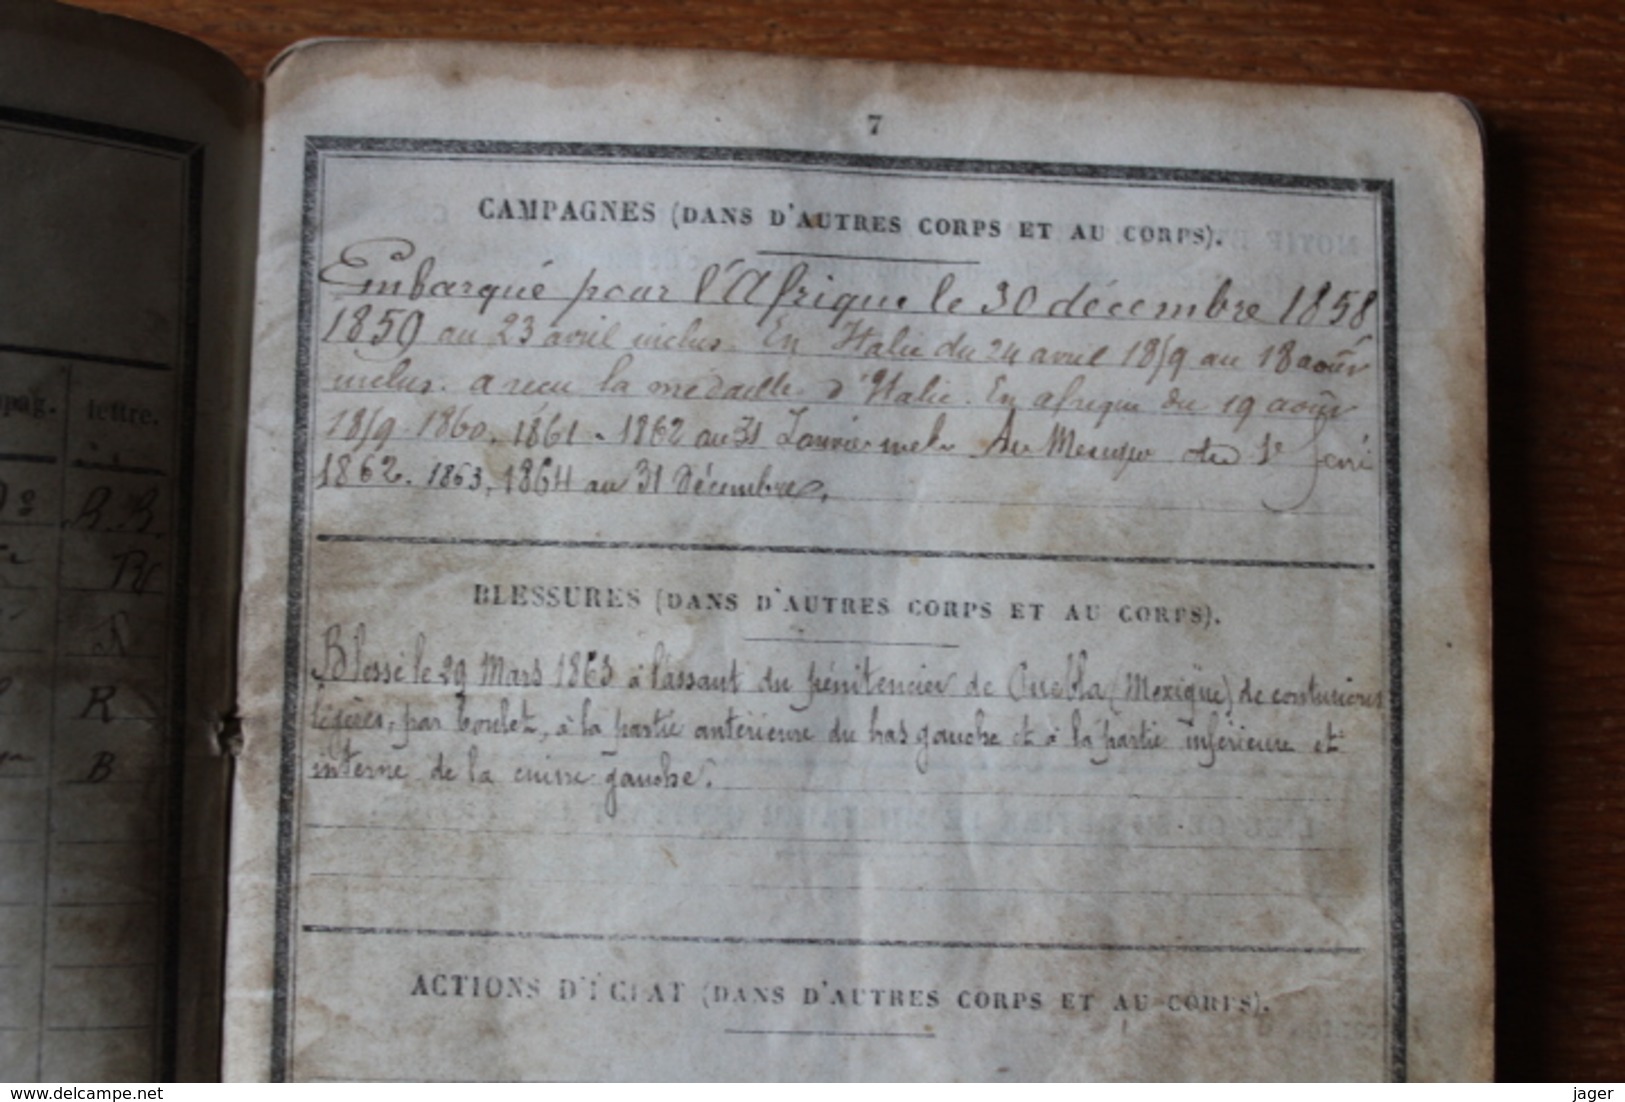 7
CAMPAGNES (DANS D'AUTRES CORPS ET AU CORPS).
Embarqué pour l'Afrique le 30 décembre 1858
1859 au 23 avril inclus. En Italie du 24 avril 1859 au 18 août
inclus. a reçu la médaille d'Italie. En afrique du 19 août
1859. 1860. 1861. 1862 au 31 Janvier incl. Au Mexique du 1er
1862. 1863. 1864 au 31 Décembre.
BLESSURES (DANS D'AUTRES CORPS ET AU CORPS).
Blessé le 29 Mars 1863 à l'assaut du pénitencier de Puebla (Mexique) de contusions
légères, par boulet, à la partie antérieure du bas gauche et à la partie inférieure et
interne de la cuisse gauche.
ACTIONS D'ÉCLAT (DANS D'AUTRES CORPS ET AU CORPS).
pag.
lettre.
R. R.
R
R
B
©www.delcampe.net
jager